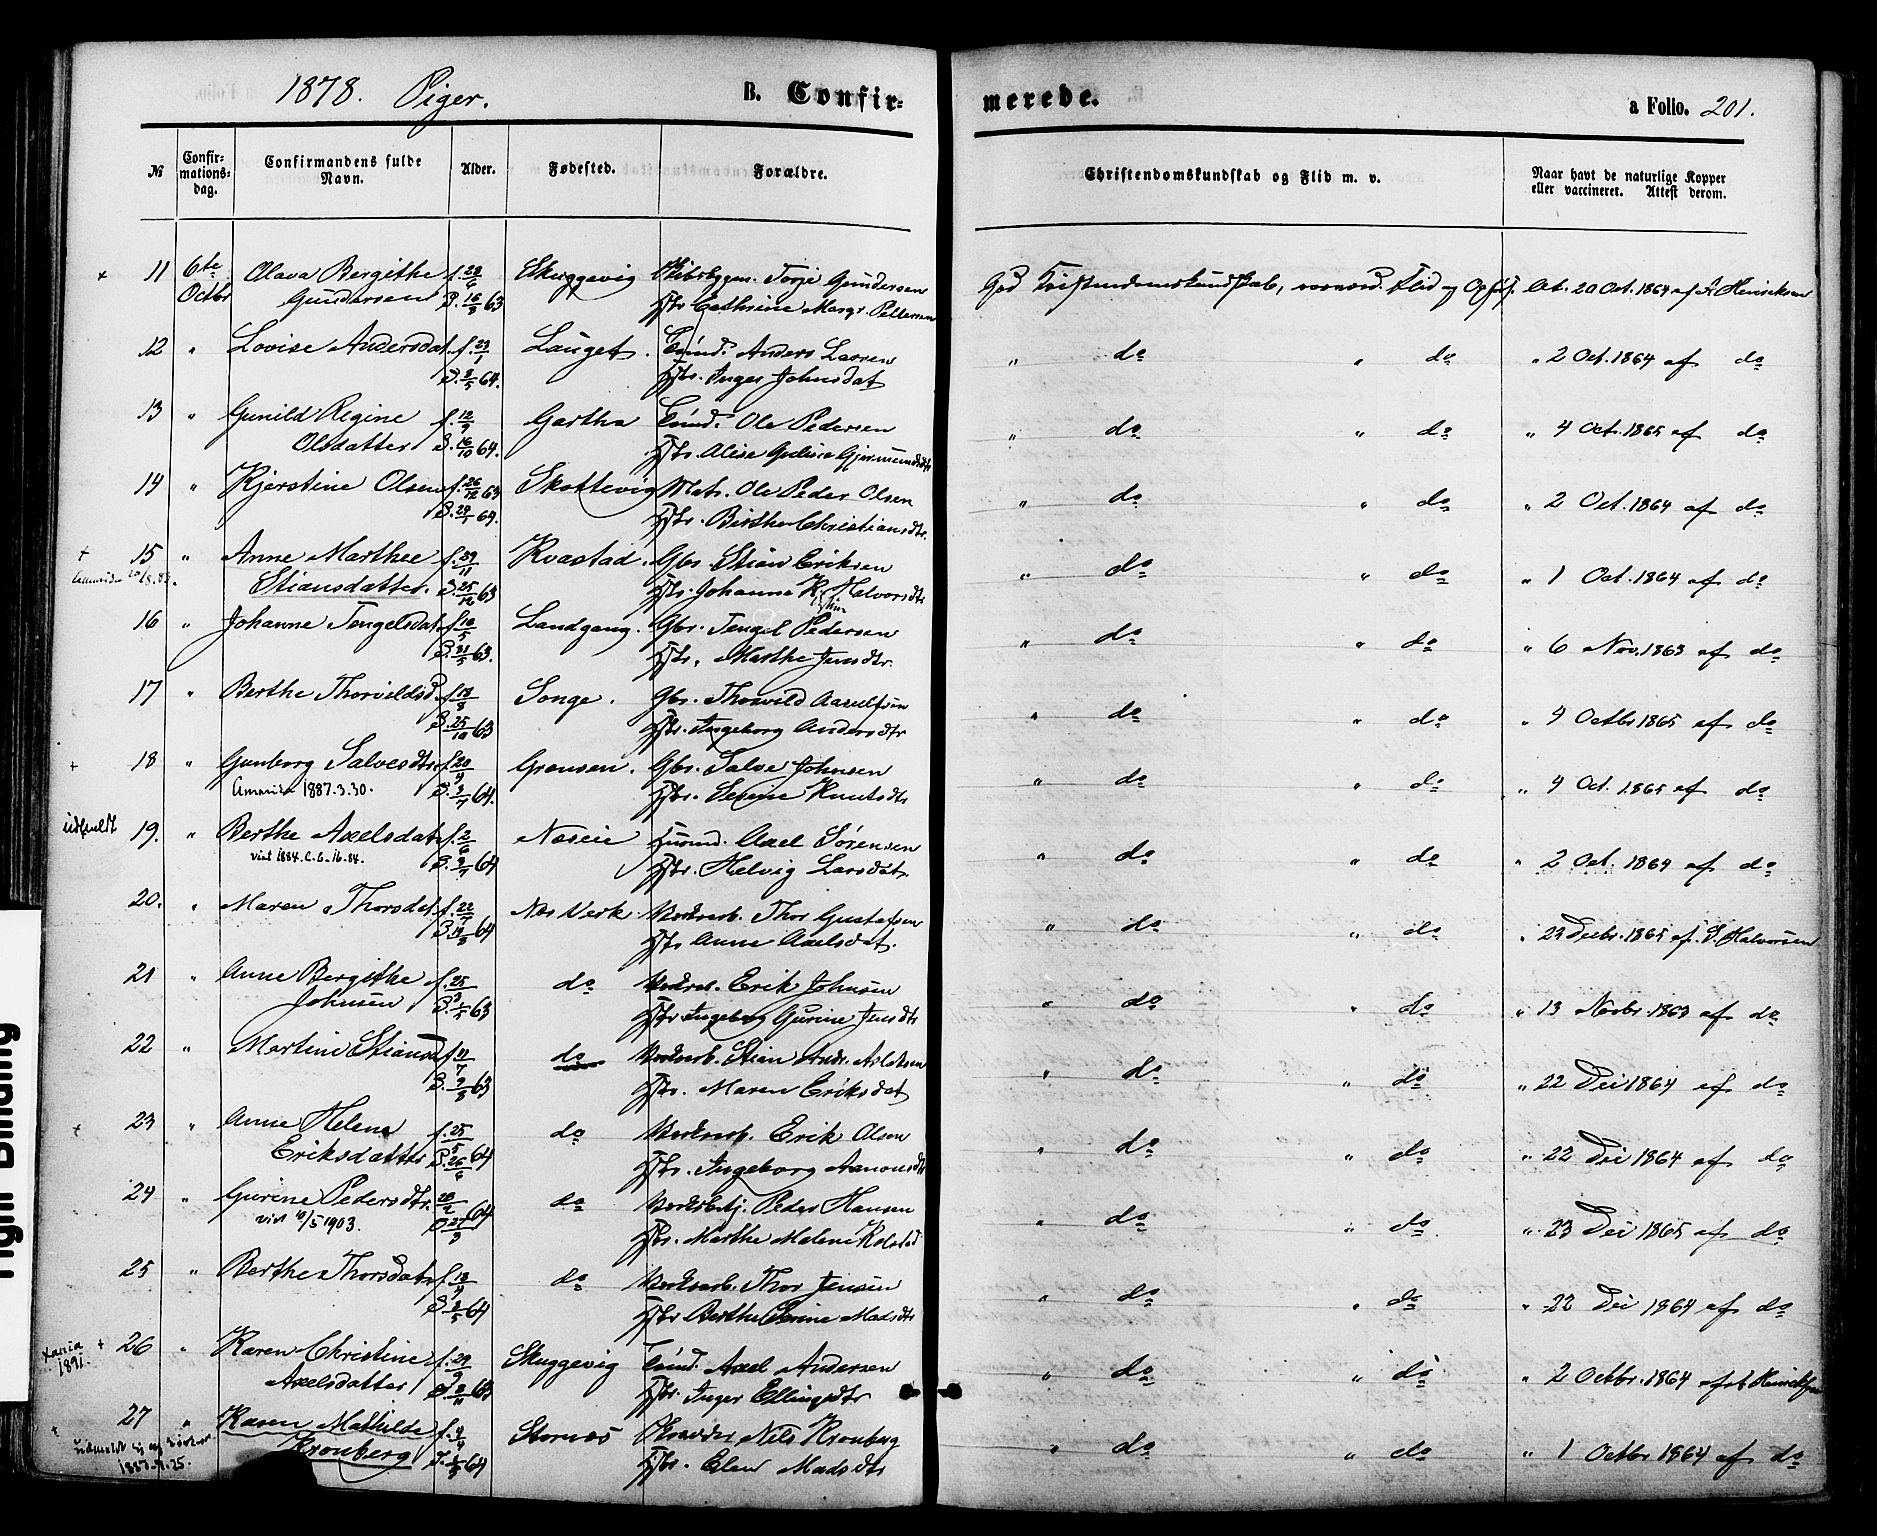 1878. Piger. B. Confir- merede. a Folio. 201.
№ Confir-mations-dag. Confirmandens fulde Navn. Alder. Fødested. Forældre. Christendomskundskab og Flid m. v. Naar havt de naturlige Kopper eller vaccineret. Attest derom.
+ 11 6te Octbr Olava Bergithe f. 22/6 Skuggevig Torje Gundersen God Kristendomskundskab, Flid og At. 20 Oct. 1864 af Henricksen
Gundersen D. 16/8 63 Hstr Cathrine Margr. Pettersen
12 " Lovise Andersdat. f. 23/1 Lauget. Anders Larsen " do " do " 2 Oct. 1864 af do
D. 8/5 64. Hstr. Inger Johnsdat
13 " Gunild Regine f. 12/9 Gartha Ole Pedersen " do " do " 4 Oct. 1865 af do
Olsdatter D. 16/10 64. Hstr. Alise Gjermundsdtr
14 " Kjerstine Olsen f. 26/12 63 Skottevig Mats. Ole Peder Olsen " do " do " 2 Oct. 1864 af do
D. 24/1 64. Hstr. Birthe Christiansdtr.
+ 15 " Anne Marthee f. 29/11 Kvastad. Gbr. Stian Eriksen " do " do " 1 Oct. 1864 af do
Stiansdatter. D. 25/12 63 Hstr. Johanne Halvorsdtr
16 " Johanne Tengelsdat f. 16/5 Landgang. Gbr. Tengel Pedersen " do " do " 6 Nov. 1863 af do
D. 31/5 63. Hstr. Marthe Jensdtr.
17 " Berthe Thorvildsd. f. 18/8 Songe. Gbr. Thorvild " do " do " 4 Octbr 1865 af do
D. 25/10 63 Hstr. Ingeborg Andersdtr
+ 18 " Gunborg Salvesdtr f. 20/4 Grønsen. Gbr. Salve Johnsen " do " do " 4 Oct. 1865 af do
1887.3.30. D. 3/7 64. Hstr. Serine Knutsdtr
udmeldt 19. " Berthe Axelsdat f. 2/6 Næseie Husmd. Axel Sørensen " do " do " 2 Oct. 1864 af do
viet 1884.C.6.-16.-84. D. 3/7 64 Hstr. Helvig Larsdat.
20. " Maren Thorsdat f. 22/7 Næs Verk Verksarb. Thor Gustafsen " do " do " 23 Decbr. 1865 af. Halvorsen
64 Hstr Anne Axelsdat.
21 " Anne Bergithe f. 25/3 do Erik Johnsen " do " do " 13 Novbr. 1863 af do
Johnsen 63 Hstr Ingeborg Gurine Jensdtr
22 " Martine Stiansd f. 31/7 do Verksarb. Stian Andr. " do " do " 22 Dec 1864 af do
63 Hstr. Maren Eriksdat
23 " Anne Helene f. 25/5 do Verksarb. Erik Olsen " do " do " 22 Dec 1864 af do
Eriksdatter D. 26/6 64 Hstr. Ingeborg Aanonsdtr
24 " Gurine Pedersdtr. do Peder Hansen " do " do. " 23 Dec 1865 af do
viet 10/5 1903. D. 27/3 64 Hstr. Marthe Malene
25 " Berthe Thorsdat f. 18/4 do Verksarb. Thor Jensen " do " do " 22 Dec 1864 af do
D. 8/5 64 Hstr Berthe Serine Madsdtr
Xania 1891. + 26 " Karen Christine f. 29/9 Skuggevig Axel Andersen " do " do " 2 Octbr. 1864 af Henricksen
Axelsdatter 63 Hstr. Inger Ellingsdtr
+ 27 " Karen Mathilde f. 4/4 Stornes Skrædder Nils Kronberg " do " do " 1 Octbr 1864 af do
1887. 25. Kronberg 64 Hstr. Elen Madsdtr